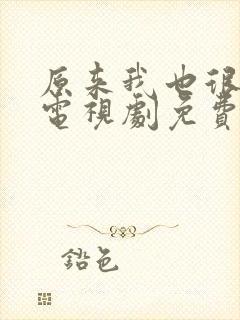 原来我也很
電視劇免費
鉛色